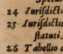 24 Jurisdict
25 Jurisdicti
statuti
26 Tabellio a